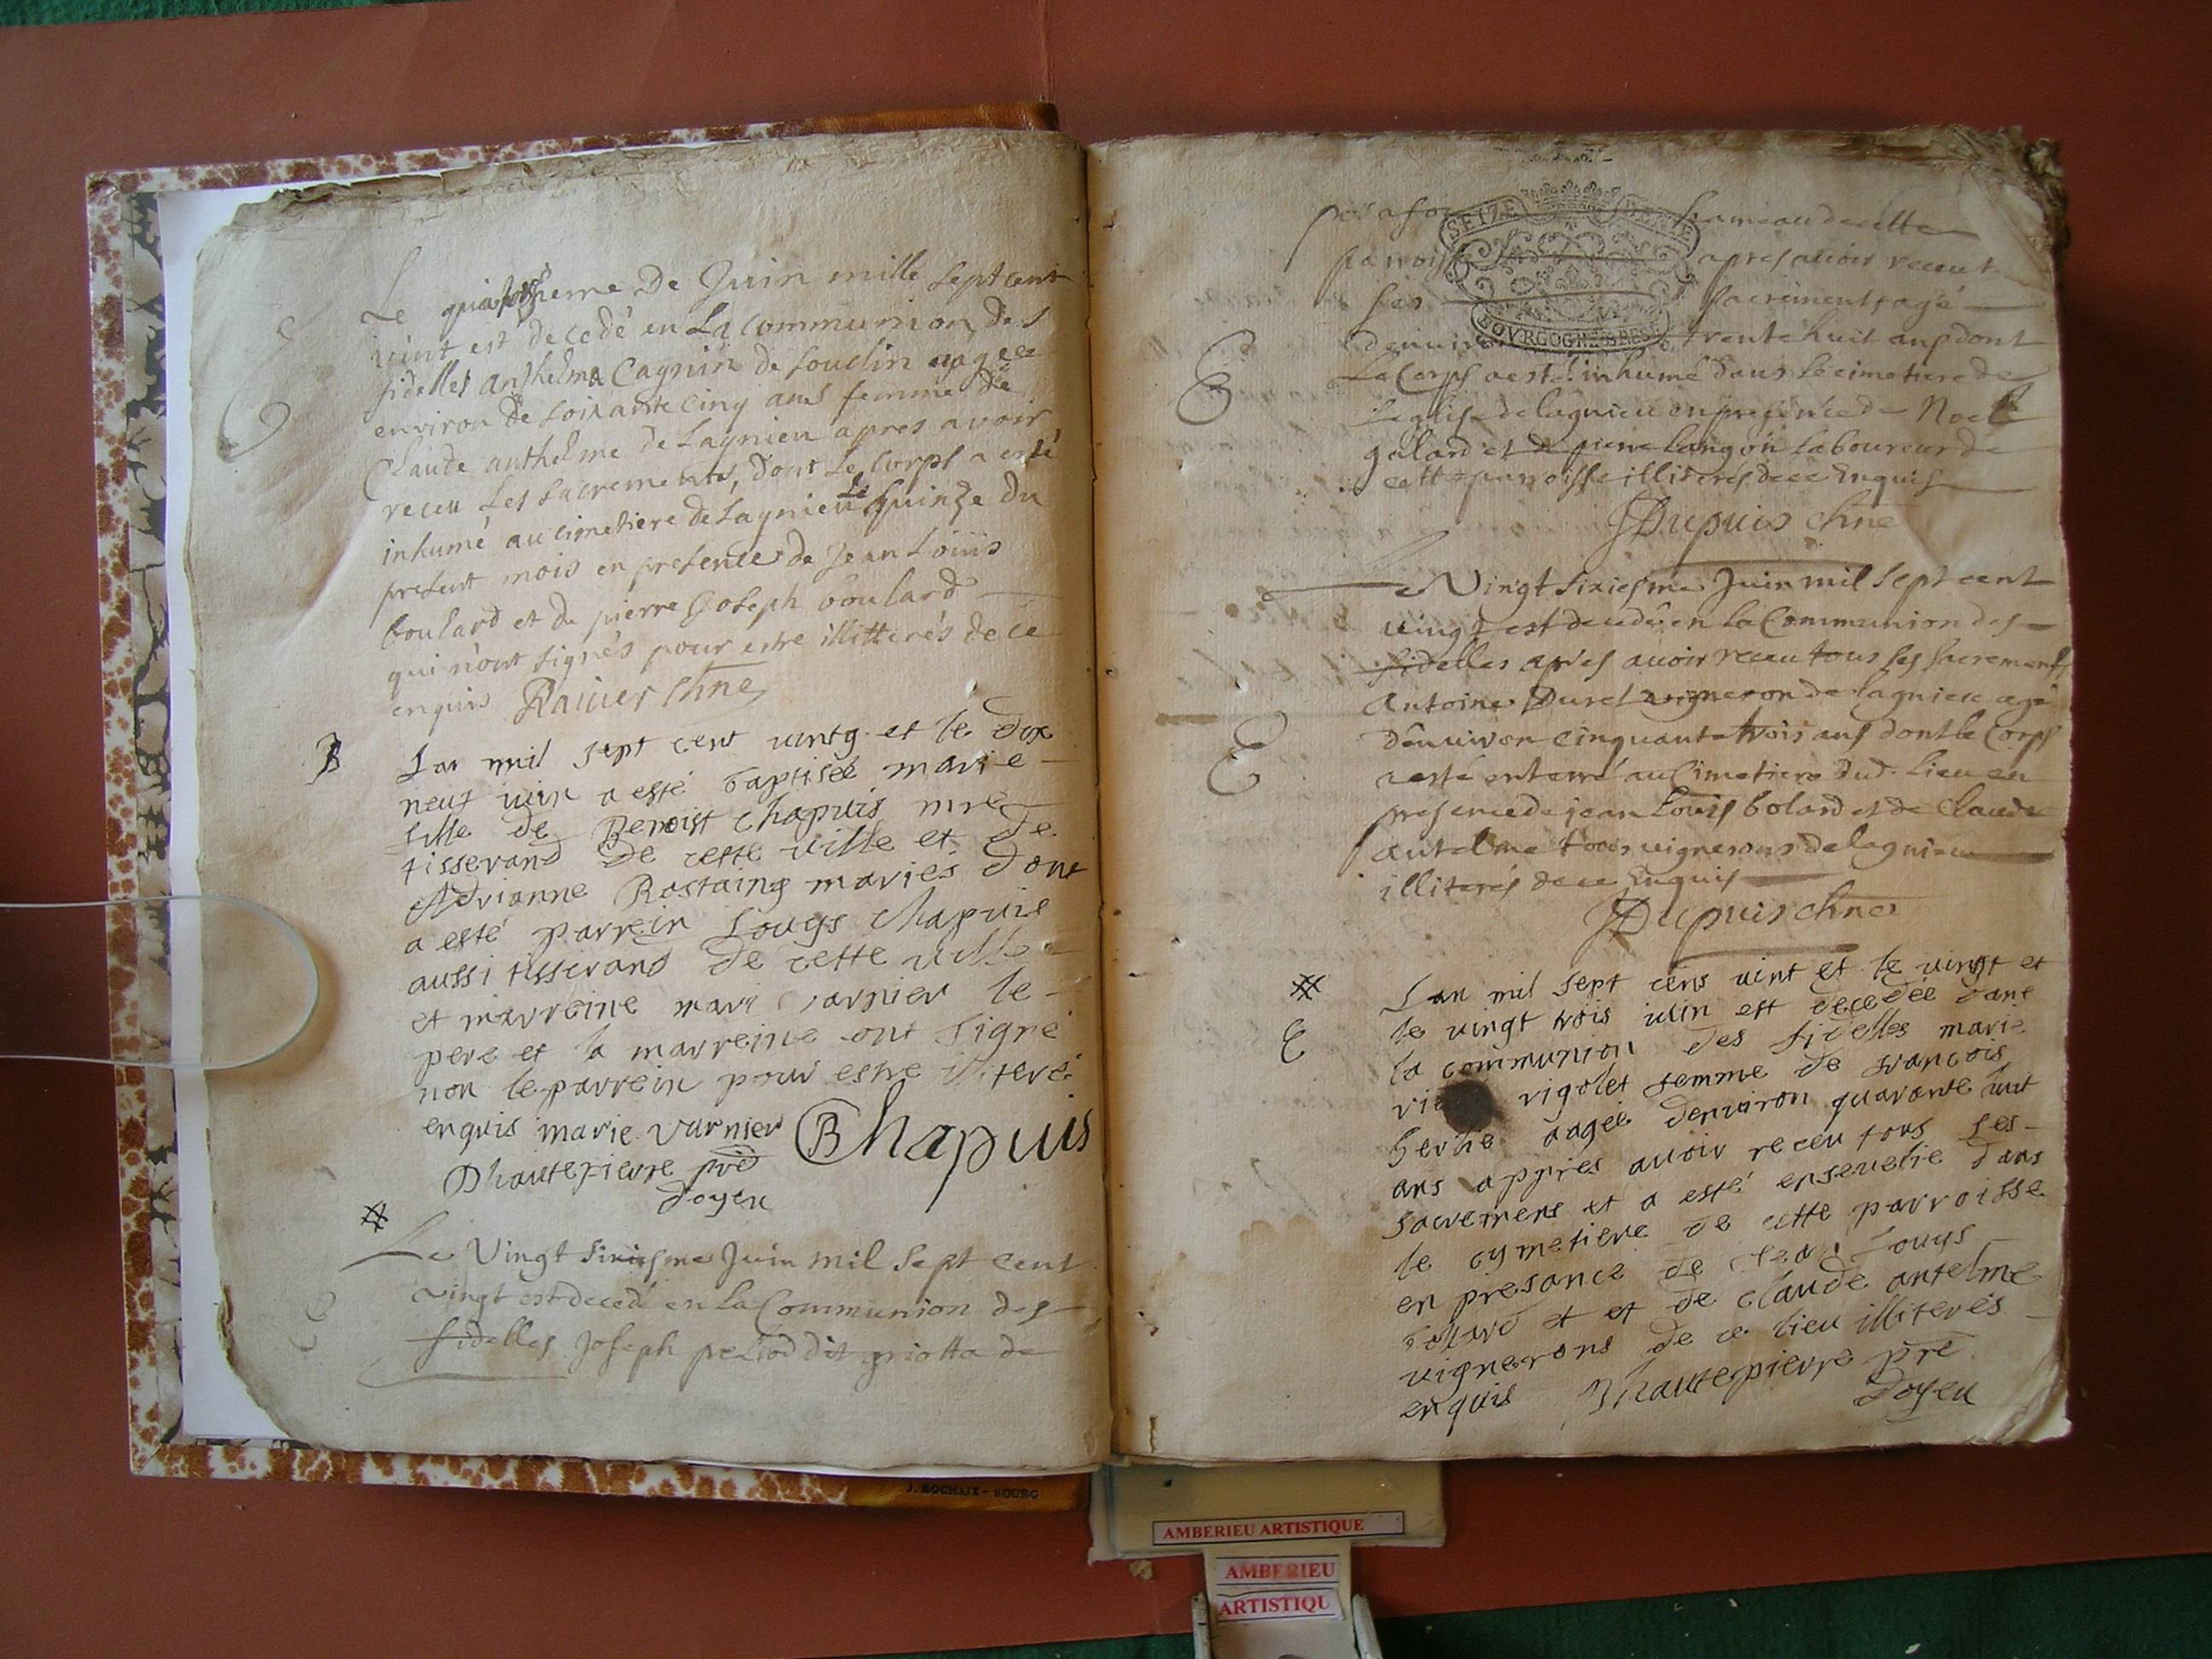 Le quatorsieme De Juin mille sept cent
vint est decedé en La communion des
fidelles anthelma Cagnin de soudin aagee
environ de soixante cinq ans femme de
Claude anthelme de Lagnieu apres avoir
receu Les sacrements, dont Le corps a esté
inhumé au cimetiere de Lagnieu Le quinze du
present mois en presence de Jean Loüis
boulard et de pierre Joseph boulard
qui n'ont signés pour estre illitterés de ce
enquis Ravier chne
B
Lan mil sept cent vintg et le dix
neuf iuin a esté baptisée marie
fille de Benoist Chapuis mre
tisserand de cette ville et de
Adrianne Rostaing mariés dont
a esté parrein Louys Chapuis
aussi tisserand de cette ville
et marreine mari varnier le
pere et la marreine ont signé
non le parrein pour estre illiteré
enquis marie varnier BChapuis
Dhautepierre pre
doyen
Le Vingt sixiesme Juin mil sept cent
vingt est decedé en la Communion des
fidelles Joseph peliod dit griotta de
SEIZE DENIE
BOVRGOGNE BRES
hameau de cette
parroisse apres avoir receut
ses sacrements agé
denviron trente huit ans dont
Le Corps a esté inhumé dans le cimetiere de
Leglise de lagnieu en presence de Noel
galard et de pierre langon laboureur de
cette parroisse illiterés de ce enquis
JDupuis chne
Le Vingt sixiesme Juin mil sept cent
vingt est decedé en la Communion des
fidelles apres avoir receu tous ses sacrements
Antoine Duret vigneron de lagnieu agé
denviron cinquante trois ans dont le Corps
a esté enterré au Cimetiere dud. lieu en
presence de jean Louis bolard et de Claude
autelme tous vignerons de lagnieu
illiterés de ce Enquis
JDupuis chne
E
Lan mil sept cens vint et le vingt et
le vingt trois iuin est decedée dans
la communion des fidelles marie
rigolet femme de francois
berthe aagée denviron quarante huit
ans appres avoir receu tous ses
sacremens et a esté ensevelie dans
le cymetiere de cette parroisse
en presance de Jean Louys
bollard et et de claude antelme
vignerons de ce lieu illiterés
enquis Dhautepierre pre
doyen
J. ROCHAIX - BOURG
AMBERIEU ARTISTIQUE
AMBERIEU
ARTISTIQU